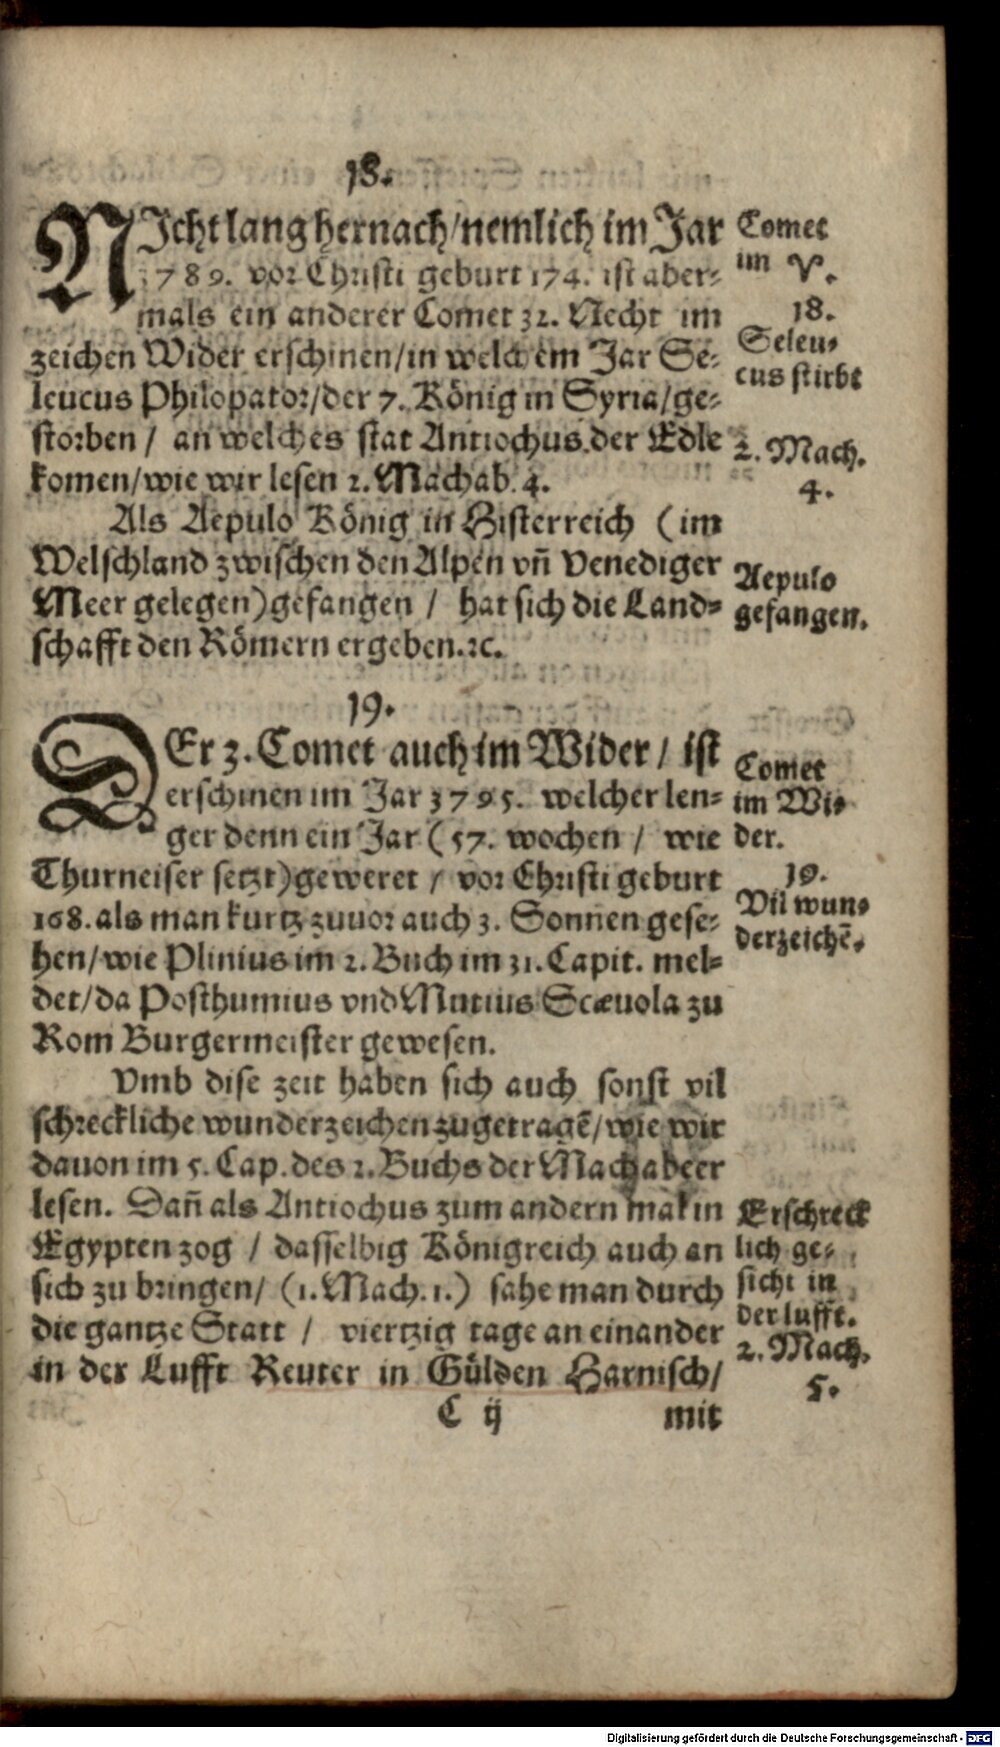 18.
NIcht lang hernach/nemlich im Jar
3789. vor Christi geburt 174. ist aber-
mals ein anderer Comet 32. Necht im
zeichen Wider erschinen/in welchem Jar Se-
leucus Philopator/der 7. König in Syria/ge-
storben / an welches stat Antiochus der Edle
komen/wie wir lesen 2. Machab. 4.
Als Aepulo König in Histerreich (im
Welschland zwischen den Alpen vñ Venediger
Meer gelegen)gefangen / hat sich die Land-
schafft den Römern ergeben.ꝛc.
Comet
im ♈.
18.
Seleu-
cus stirbt
2. Mach.
4.
Aepulo
gefangen.
19.
DEr 3. Comet auch im Wider / ist
erschinen im Jar 3795. welcher len-
ger denn ein Jar (57. wochen / wie
Thurneiser setzt)geweret / vor Christi geburt
168. als man kurtz zuuor auch 3. Sonnen gese-
hen/wie Plinius im 2. Buch im 31. Capit. mel-
det/da Posthumius vnd Mutius Scæuola zu
Rom Burgermeister gewesen.
Vmb dise zeit haben sich auch sonst vil
schreckliche wunderzeichen zugetragē/wie wir
dauon im 5. Cap. des 2. Buchs der Machabeer
lesen. Dañ als Antiochus zum andern mal in
Egypten zog / dasselbig Königreich auch an
sich zu bringen/ (1. Mach. 1.) sahe man durch
die gantze Statt / viertzig tage an einander
in der Lufft Reuter in Gülden Harnisch/
Comet
im Wi-
der.
19.
Vil wun-
derzeichē.
Erschreck
lich ge-
sicht in
der lufft.
2. Mach.
5.
C ij
mit
Digitalisierung gefördert durch die Deutsche Forschungsgemeinschaft - DFG